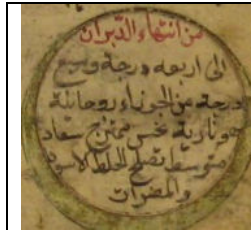 من انتهاء الدبران
الى اربعه درجة وسبع
درجة من الجوزاء روحانية
نارية نحس ممتزج سعاد
متوسط تصلح الخلط الاسود
والمضرات